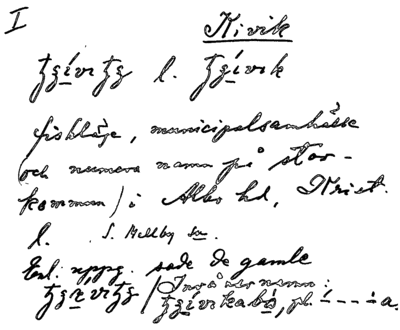 I
Kivik
l.
fiskläge, municipalsamhälle
och numera namn på stor-
kommun) i Albo hd, Krist.
l. S. Mellby sn.
Enl. uppg. sade de gamle
/ Invånarnamn:
pl. i - - - i a.